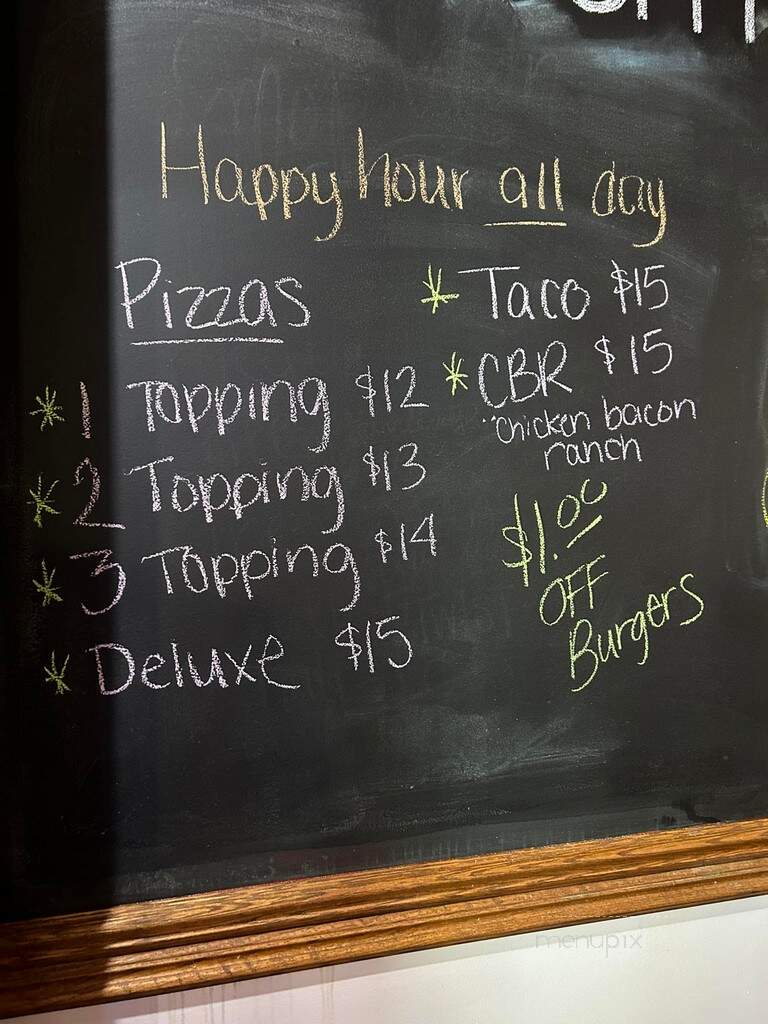 Happy hour all day
Pizzas
* 1 Topping $12
* 2 Topping $13
* 3 Topping $14
* Deluxe $15
* Taco $15
* CBR $15
"chicken bacon
ranch
$1.00
OFF
Burgers
menupix